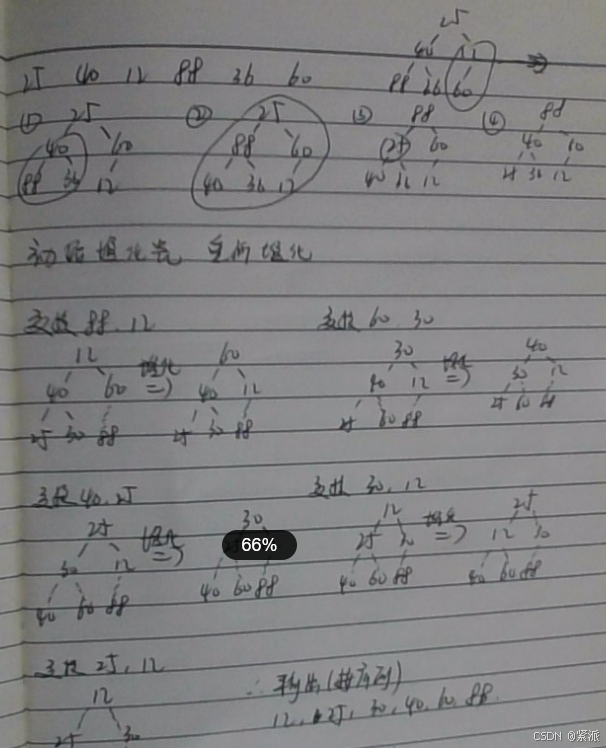 25
40 12
88 36 60
25 40 12 88 36 60
① 25 ② 25 ③ 88 ④ 88
40 60 88 60 25 60 40 60
88 36 12 40 36 12 40 36 12 25 36 12
初始堆化完 重新堆化
交换 88、12 交换 60、30
12 堆化 60 30 堆化 40
40 60 => 40 12 40 12 => 30 12
25 30 88 25 30 88 25 60 88 25 60 88
交换 40、25 交换 30、12
25 堆化 30 12 堆化 25
30 12 => 25 30 => 12 30
40 60 88 40 60 88 40 60 88 40 60 88
66%
交换 25、12
12 ∴ 输出(按序列)
25 30 12、25、30、40、60、88
CSDN @紧派